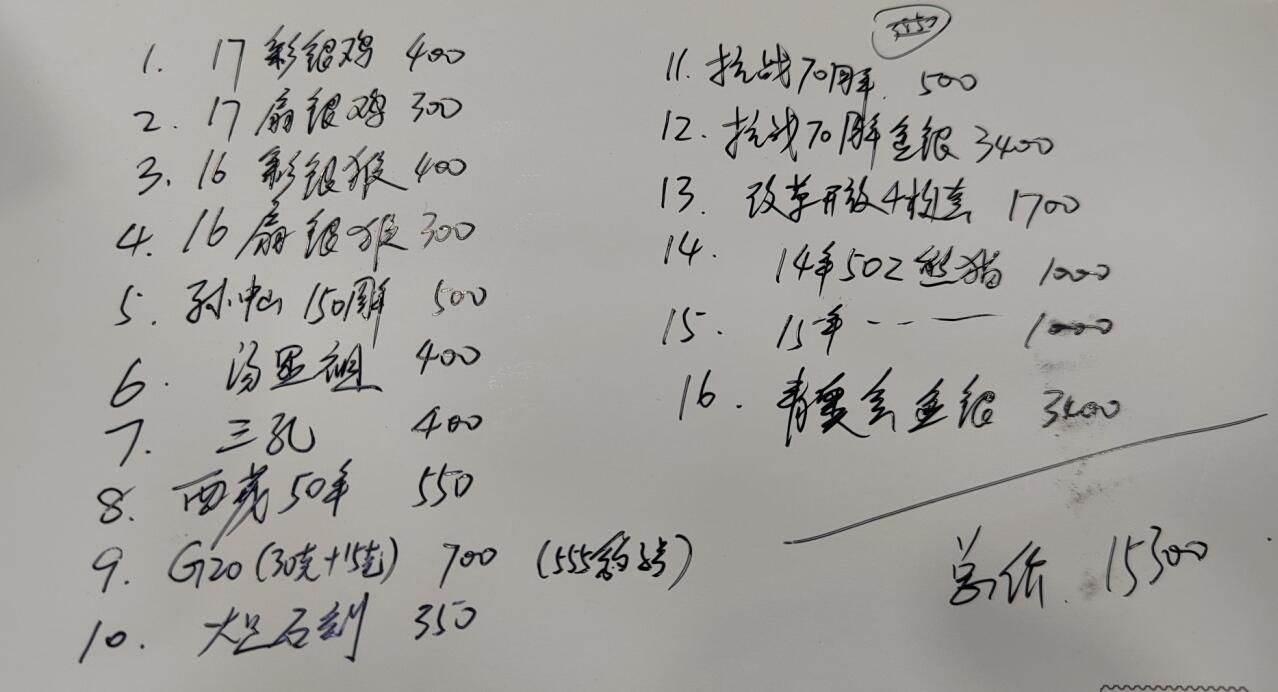 1. 17 彩银鸡 400
2. 17 扇银鸡 300
3. 16 彩银猴 400
4. 16 扇银猴 300
5. 孙中山 150周年 500
6. 汤显祖 400
7. 三孔 400
8. 西藏50年 550
9. G20(30克+15克) 700 (555
10. 大足石刻 350
11. 抗战70周年 500
12. 抗战70周年金银 3400
13. 改革开放4枚套 1700
14. 14年50Z熊猫 1000
15. 15年 - - — 1000
16. 青奥会金银 3400
总价 15300